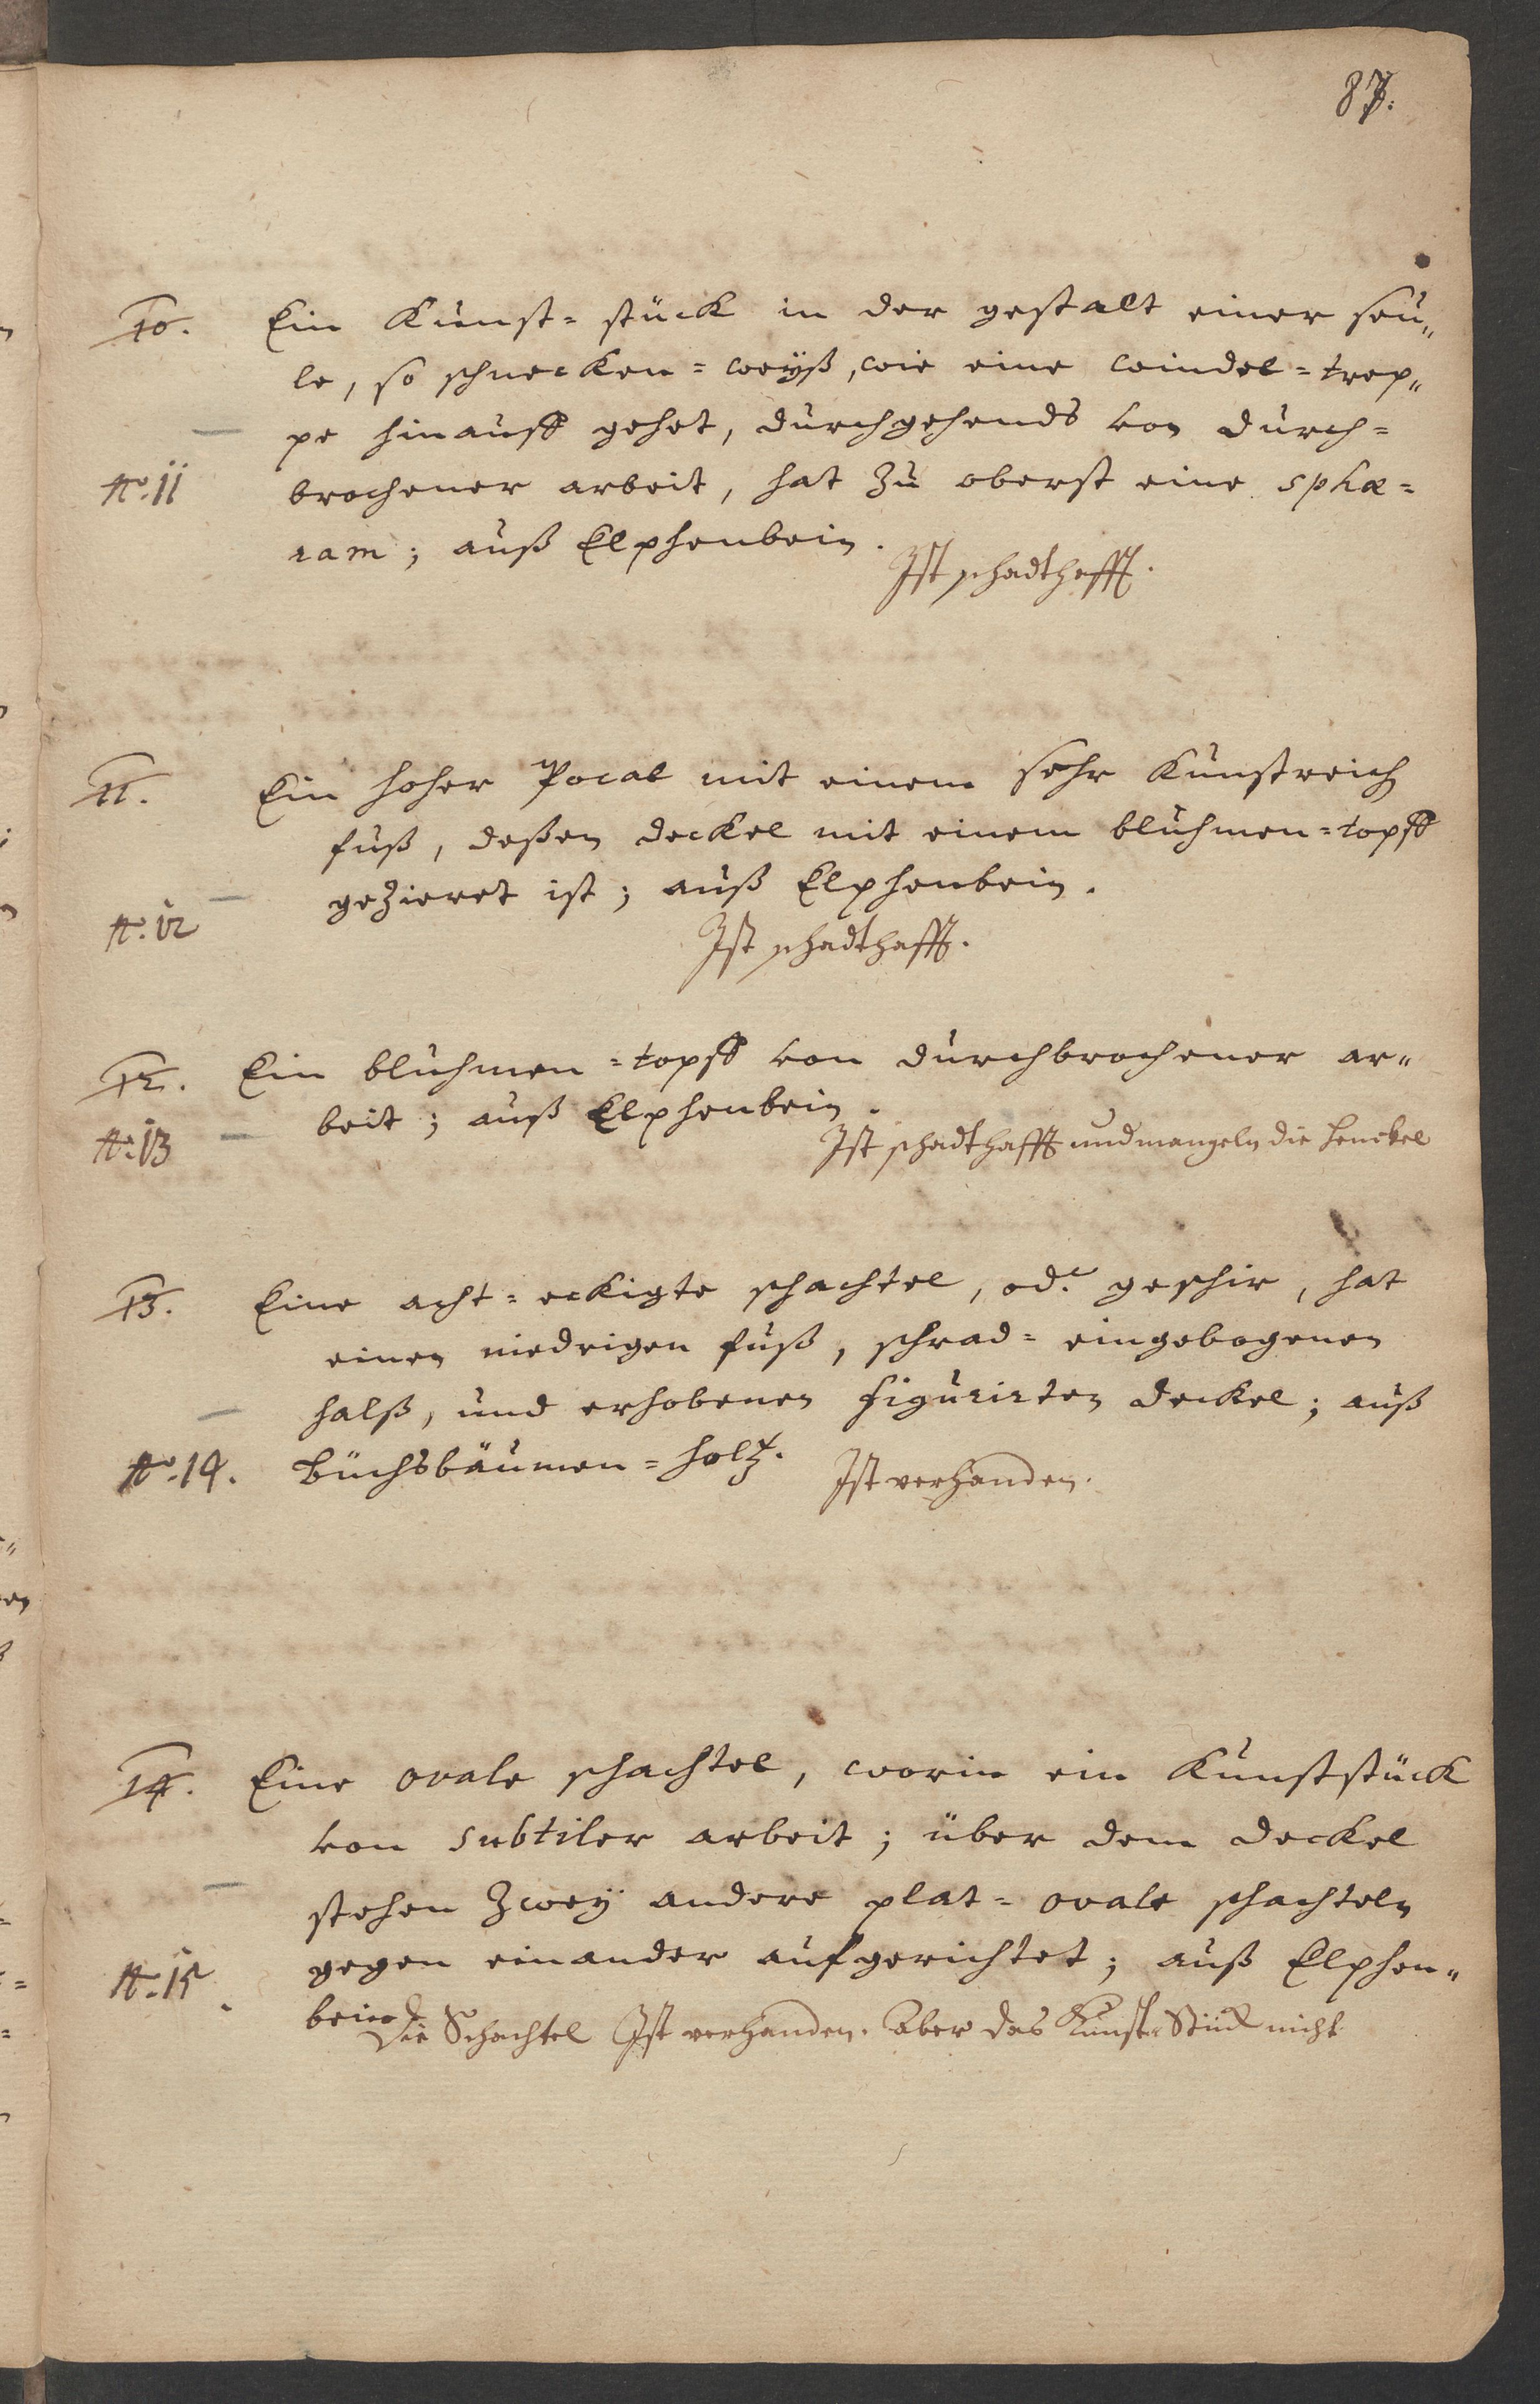 87.
10. Ein Kunst= stück in der gestalt einer seu„
le, so schnecken= weÿß, wie eine windel= trep„
pe hinauff gehet, durchgehends von durch=
No. 11 brochener arbeit, hat zu oberst eine sphæ=
ram; auß Elphenbein.
Ist schadthafft.
11. Ein hoher Pocal mit einem sehr Kunstreich
fuß, deßen deckel mit einem bluhmen=topff
gezieret ist; auß Elphenbein.
No. 12
Ist schadthafft.
12. Ein bluhmen=topff von durchbrochener ar„
beit; auß Elphenbein.
No. 13 Ist schadthafft und mangeln die henckel
13. Eine acht= eckigte schachtel, od. geschir, hat
einen niedrigen fuß, schrad= eingebogenen
halß, und erhobenen figurirten deckel; auß
No. 14. büchsbäumen= holtz. Ist verhanden.
14. Eine ovale schachtel, worin ein Kunststück
von subtiler arbeit; über dem deckel
stehen zweÿ andere plat= ovale schachteln
No. 15. gegen einander aufgerichtet; auß Elphen„
bein
Die Schachtel Ist verhanden. Aber das Kunst Stück nicht